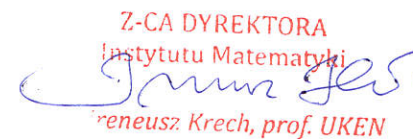 Z-CA DYREKTORA
Instytutu Matematyki
Ireneusz Krech, prof. UKEN